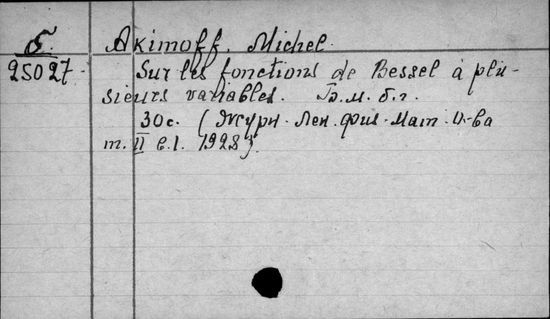 Б. Akimoff, Michel.
25027. Sur les fonctions de Bessel à plu-
sieurs variables. Б.м. б.г.
30с. (Журн. Лен. физ.-мат. о-ва
т. II в.1. 1928).